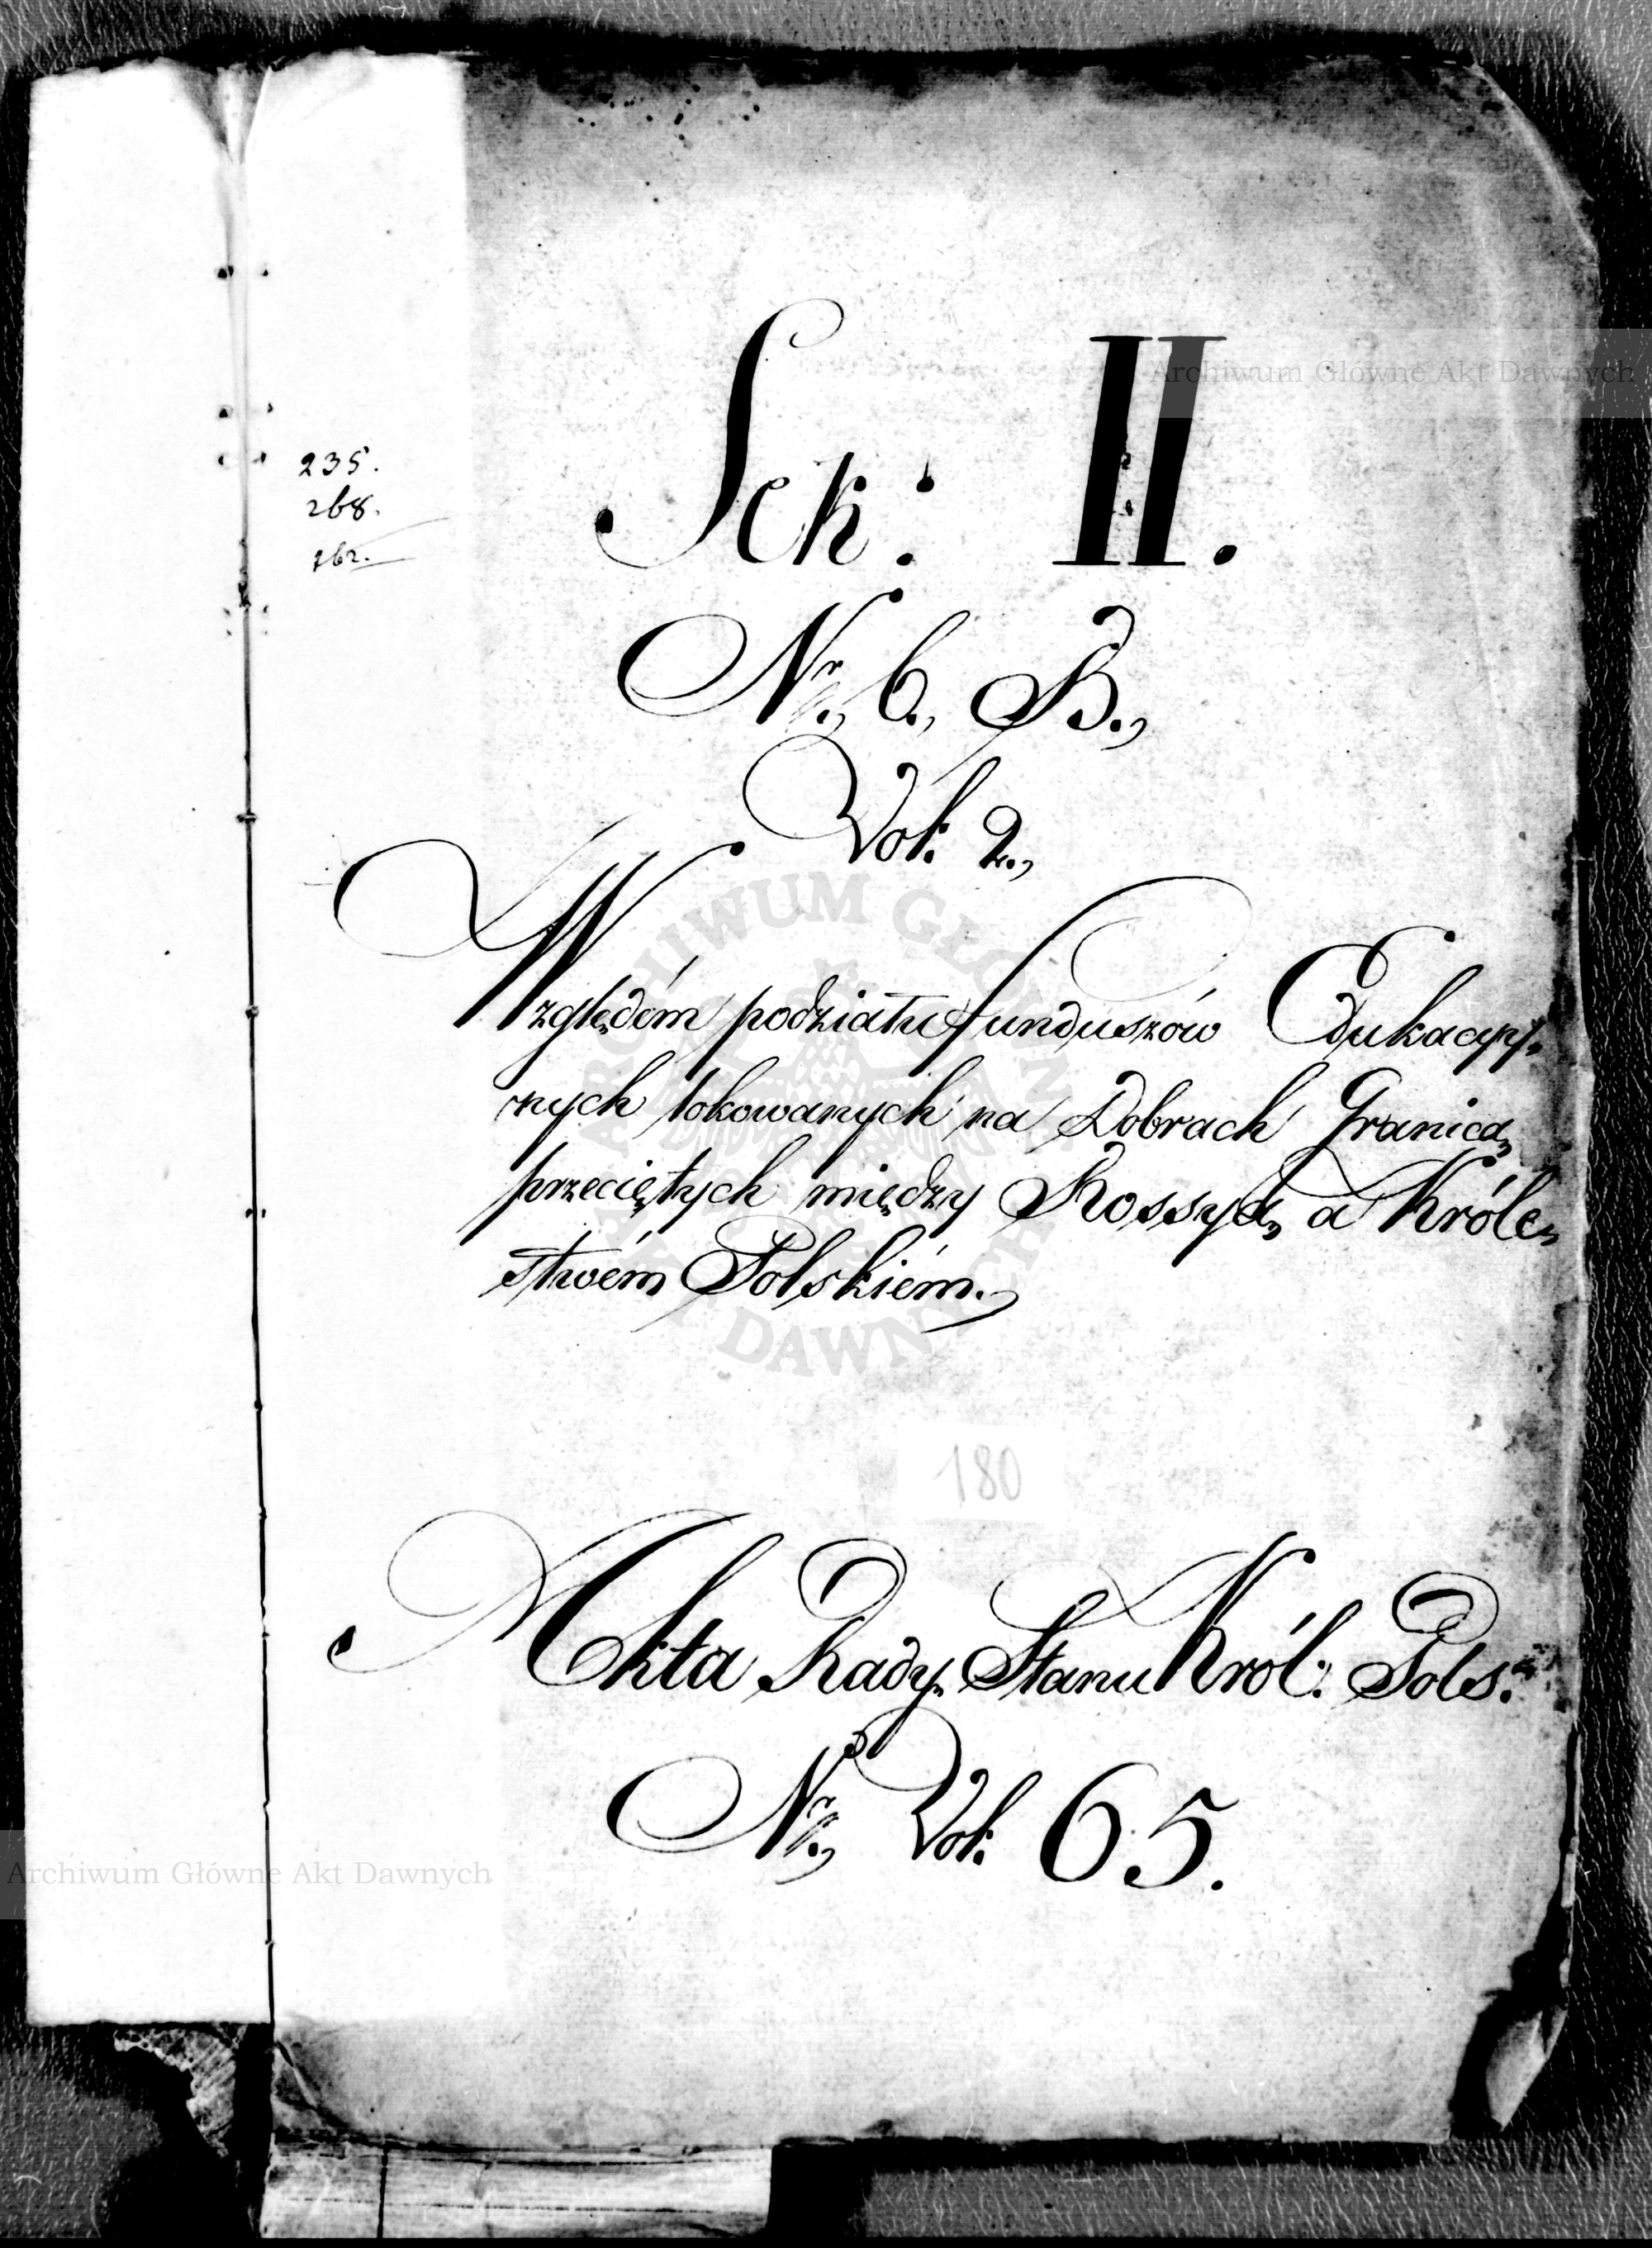 Sek: II.
235.
268.
262.
Nr., 6., B.,
Vol: 2.,
Względém podziału funduszów Edukacyy,
nych lokowanych na Dobrach Granicą
przeciętych między Rossyą, a Króle,
stwém Polskiém.
180
Akta Rady Stanu Król: Pols:
Nr., Vol: 65.
Archiwum Główne Akt Dawnych
Archiwum Główne Akt Dawnych
ARCHIWUM GŁÓWNE AKT DAWNYCH